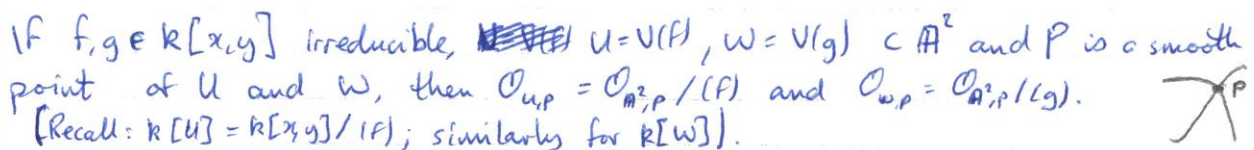 If f,g ∈ k[x,y] irreducible, U=V(f), W=V(g) ⊂ 𝔸² and P is a smooth
point of U and W, then 𝒪_{U,P} = 𝒪_{𝔸²,P}/(f) and 𝒪_{W,P} = 𝒪_{𝔸²,P}/(g).
[Recall: k[U] = k[x,y]/(f); similarly for k[W]].
P